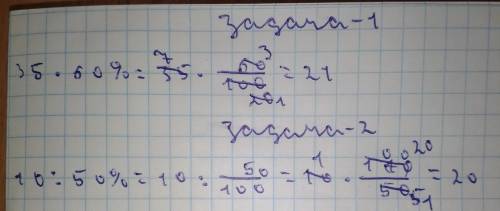 Задача-1
35 · 60% = 35 7 · 60 3 / 100 20 1 = 21
Задача-2
10 : 50% = 10 : 50 / 100 = 10 1 · 100 20 / 50 5 1 = 20